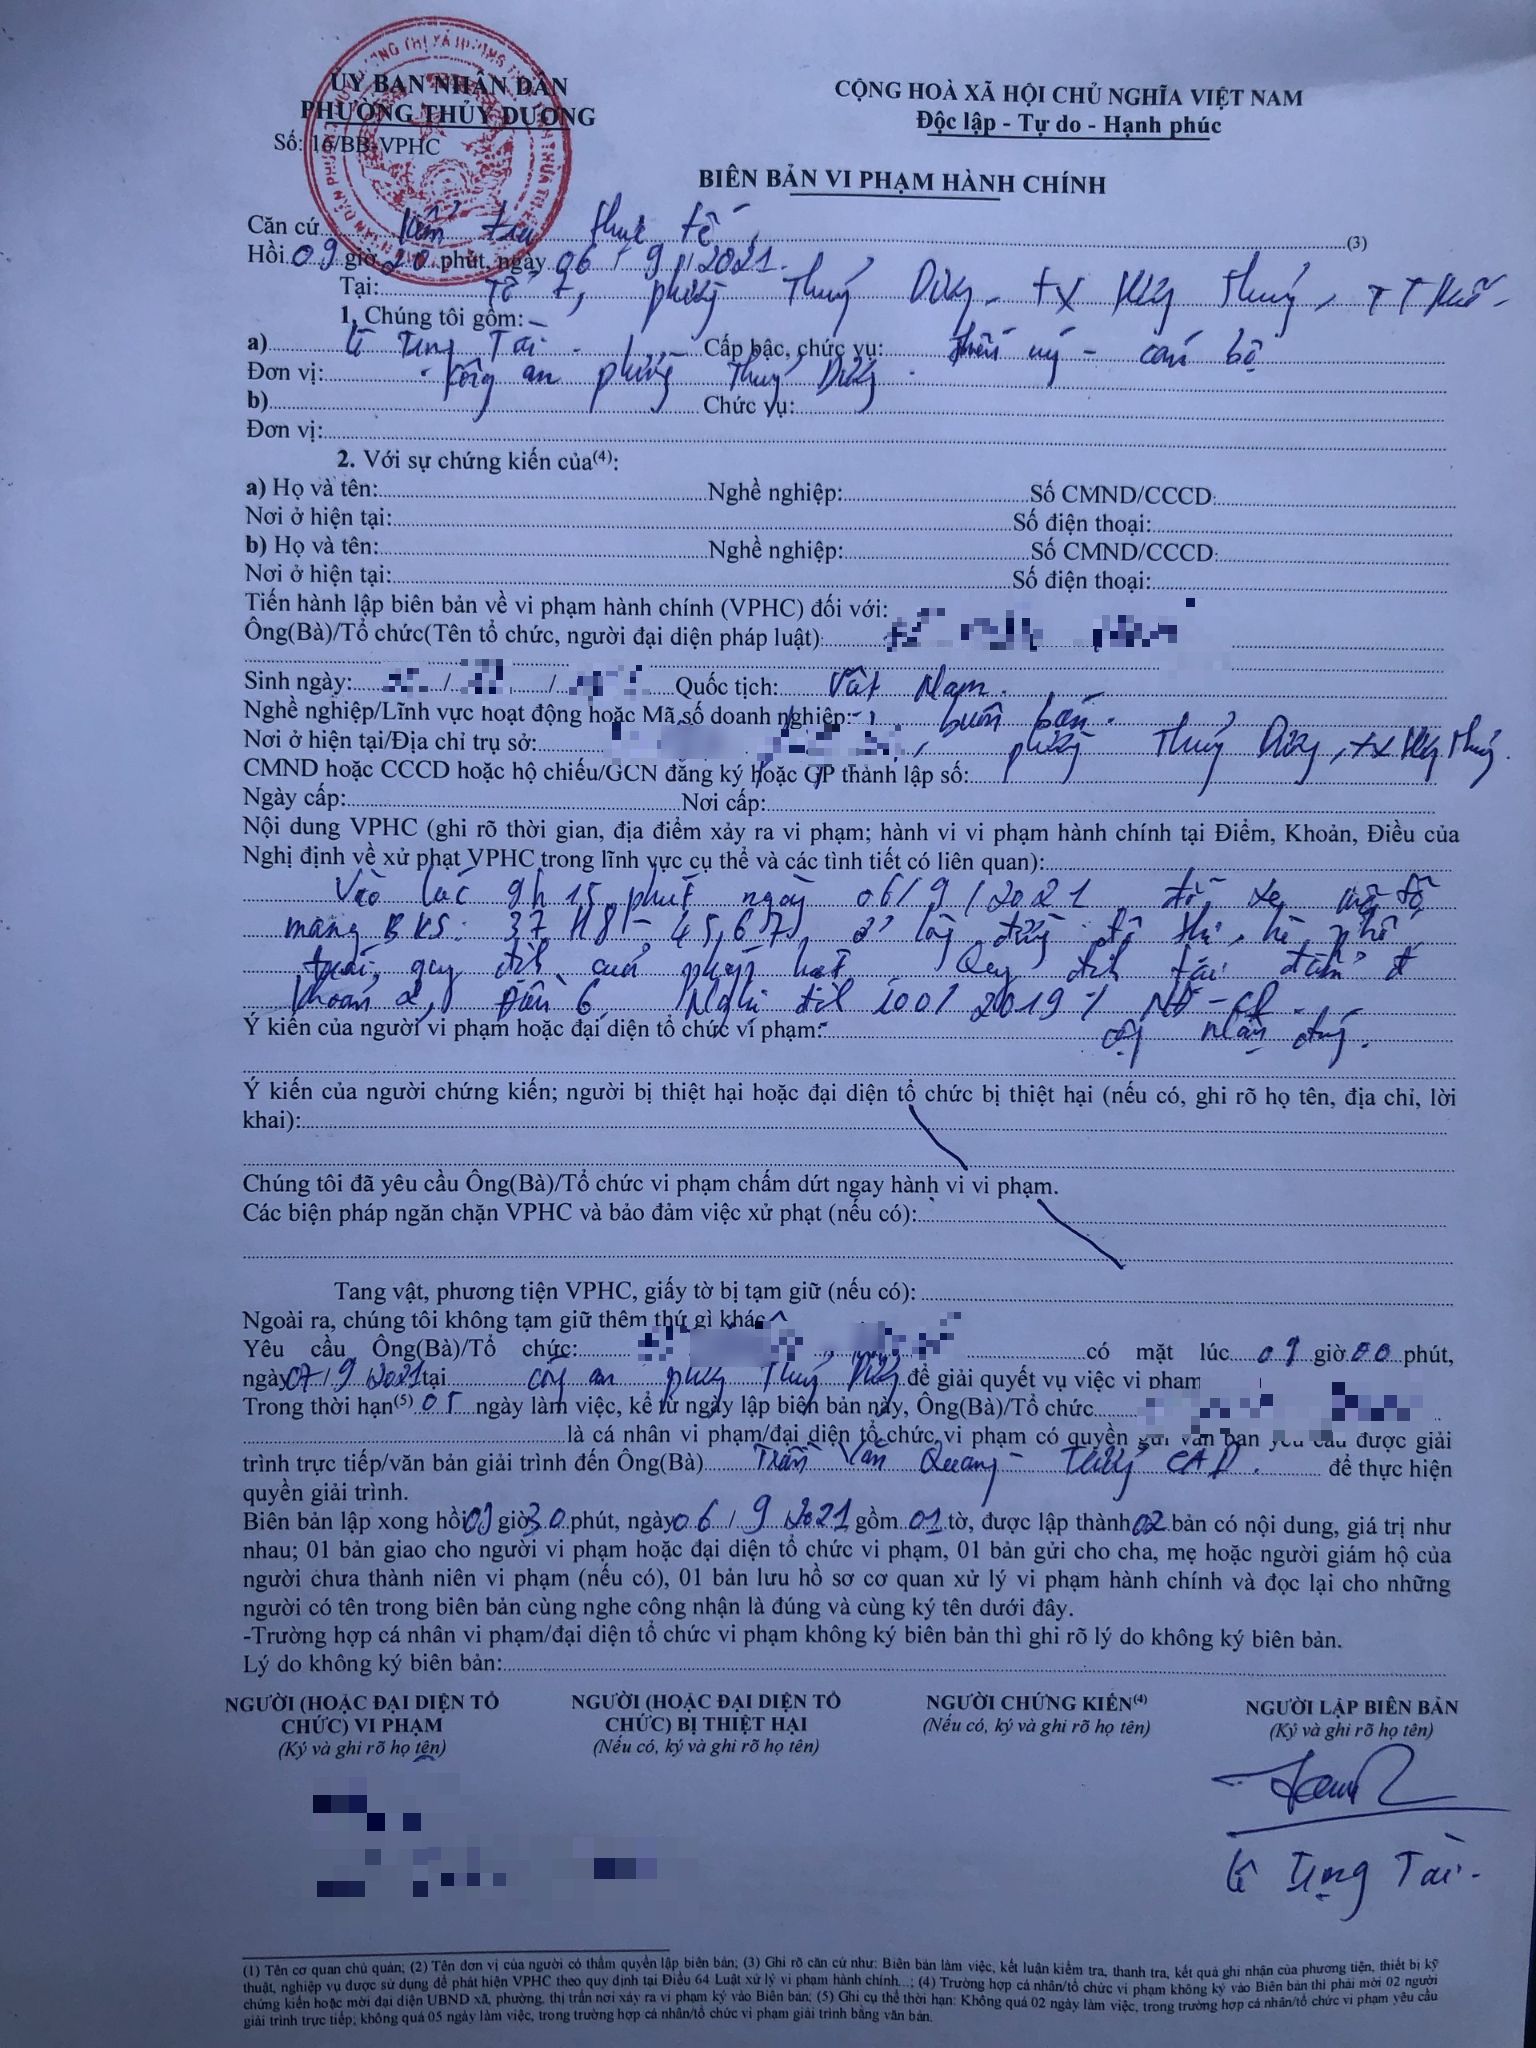 ỦY BAN NHÂN DÂN
PHƯỜNG THỦY DƯƠNG
Số: 16/BB-VPHC
CỘNG HOÀ XÃ HỘI CHỦ NGHĨA VIỆT NAM
Độc lập - Tự do - Hạnh phúc
BIÊN BẢN VI PHẠM HÀNH CHÍNH
Căn cứ kiểm tra thực tế (3)
Hồi 09 giờ 20 phút, ngày 06 / 9 / 2021.
Tại: Tổ 7, phường Thuỷ Dương, tx Hương Thuỷ, TT Huế
1. Chúng tôi gồm:
a) Lê Tụng Tài Cấp bậc, chức vụ: thiếu uý - cán bộ
Đơn vị: Công an phường Thuỷ Dương
b) Chức vụ:
Đơn vị:
2. Với sự chứng kiến của(4):
a) Họ và tên: Nghề nghiệp: Số CMND/CCCD:
Nơi ở hiện tại: Số điện thoại:
b) Họ và tên: Nghề nghiệp: Số CMND/CCCD:
Nơi ở hiện tại: Số điện thoại:
Tiến hành lập biên bản về vi phạm hành chính (VPHC) đối với:
Ông(Bà)/Tổ chức(Tên tổ chức, người đại diện pháp luật):
Sinh ngày: / / Quốc tịch: Việt Nam.
Nghề nghiệp/Lĩnh vực hoạt động hoặc Mã số doanh nghiệp: buôn bán.
Nơi ở hiện tại/Địa chỉ trụ sở: , phường Thuỷ Dương, tx Hương Thuỷ.
CMND hoặc CCCD hoặc hộ chiếu/GCN đăng ký hoặc GP thành lập số:
Ngày cấp: Nơi cấp:
Nội dung VPHC (ghi rõ thời gian, địa điểm xảy ra vi phạm; hành vi vi phạm hành chính tại Điểm, Khoản, Điều của
Nghị định về xử phạt VPHC trong lĩnh vực cụ thể và các tình tiết có liên quan):
Vào lúc 9h 15 phút ngày 06/9/2021 đỗ xe mô tô
mang BKS: 37 H8 - 45,67), ở lòng đường đô thị, hè phố
trái quy định của pháp luật. Quy định tại điểm đ
khoản 2, Điều 6, Nghị định 100/2019/NĐ-CP.
Ý kiến của người vi phạm hoặc đại diện tổ chức vi phạm: công nhận đúng.
Ý kiến của người chứng kiến; người bị thiệt hại hoặc đại diện tổ chức bị thiệt hại (nếu có, ghi rõ họ tên, địa chỉ, lời
khai):
Chúng tôi đã yêu cầu Ông(Bà)/Tổ chức vi phạm chấm dứt ngay hành vi vi phạm.
Các biện pháp ngăn chặn VPHC và bảo đảm việc xử phạt (nếu có):
Tang vật, phương tiện VPHC, giấy tờ bị tạm giữ (nếu có):
Ngoài ra, chúng tôi không tạm giữ thêm thứ gì khác
Yêu cầu Ông(Bà)/Tổ chức: có mặt lúc 09 giờ 00 phút,
ngày 07/ 9 /2021 tại công an phường Thuỷ Dương để giải quyết vụ việc vi phạm
Trong thời hạn(5) 05 ngày làm việc, kể từ ngày lập biên bản này, Ông(Bà)/Tổ chức
là cá nhân vi phạm/đại diện tổ chức vi phạm có quyền gửi văn bản yêu cầu được giải
trình trực tiếp/văn bản giải trình đến Ông(Bà) Trần Văn Quang - Trưởng CAP. để thực hiện
quyền giải trình.
Biên bản lập xong hồi 09 giờ 30 phút, ngày 06 / 9 /2021 gồm 01 tờ, được lập thành 02 bản có nội dung, giá trị như
nhau; 01 bản giao cho người vi phạm hoặc đại diện tổ chức vi phạm, 01 bản gửi cho cha, mẹ hoặc người giám hộ của
người chưa thành niên vi phạm (nếu có), 01 bản lưu hồ sơ cơ quan xử lý vi phạm hành chính và đọc lại cho những
người có tên trong biên bản cùng nghe công nhận là đúng và cùng ký tên dưới đây.
-Trường hợp cá nhân vi phạm/đại diện tổ chức vi phạm không ký biên bản thì ghi rõ lý do không ký biên bản.
Lý do không ký biên bản:
NGƯỜI (HOẶC ĐẠI DIỆN TỔ
CHỨC) VI PHẠM
(Ký và ghi rõ họ tên)
NGƯỜI (HOẶC ĐẠI DIỆN TỔ
CHỨC) BỊ THIỆT HẠI
(Nếu có, ký và ghi rõ họ tên)
NGƯỜI CHỨNG KIẾN(4)
(Nếu có, ký và ghi rõ họ tên)
NGƯỜI LẬP BIÊN BẢN
(Ký và ghi rõ họ tên)
Lê Tụng Tài
(1) Tên cơ quan chủ quản; (2) Tên đơn vị của người có thẩm quyền lập biên bản; (3) Ghi rõ căn cứ như: Biên bản làm việc, kết luận kiểm tra, thanh tra, kết quả ghi nhận của phương tiện, thiết bị kỹ
thuật, nghiệp vụ được sử dụng để phát hiện VPHC theo quy định tại Điều 64 Luật xử lý vi phạm hành chính...; (4) Trường hợp cá nhân/tổ chức vi phạm không ký vào Biên bản thì phải mời 02 người
chứng kiến hoặc mời đại diện UBND xã, phường, thị trấn nơi xảy ra vi phạm ký vào Biên bản; (5) Ghi cụ thể thời hạn: Không quá 02 ngày làm việc, trong trường hợp cá nhân/tổ chức vi phạm yêu cầu
giải trình trực tiếp; không quá 05 ngày làm việc, trong trường hợp cá nhân/tổ chức vi phạm giải trình bằng văn bản.